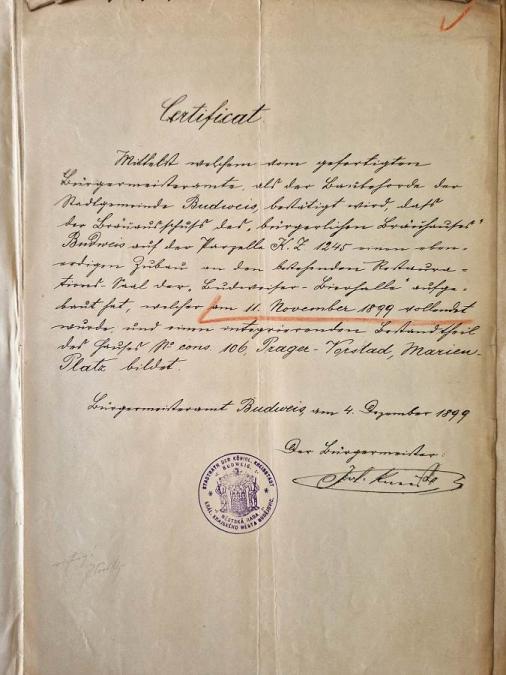 Certificat
Mittelst welchem vom gefertigten
Bürgermeisteramte, als der Baubehörde der
Stadtgemeinde Budweis, bestätigt wird, daß
der Bräuausschuß des „bürgerlichen Bräuhauses"
Budweis auf der Parzelle K.Z. 1245 einen eben-
erdigen Zubau an den bestehenden Restaura-
tions-Saal der „Budweiser-Bierhalle" aufge-
baut hat, welcher am 11. November 1899 vollendet
wurde, und einen integrierenden Bestandtheil
des Hauses No cons. 106, Prager-Vorstad, Marien-
Platz bildet.
Bürgermeisteramt Budweis, am 4. Dezember 1899
Der Bürgermeister:
STADTRATH DER KÖNIGL. KREISSTADT
BUDWEIS.
MĚSTSKÁ RADA
KRÁL. KRAJSKÉHO MĚSTA BUDĚJOVIC.